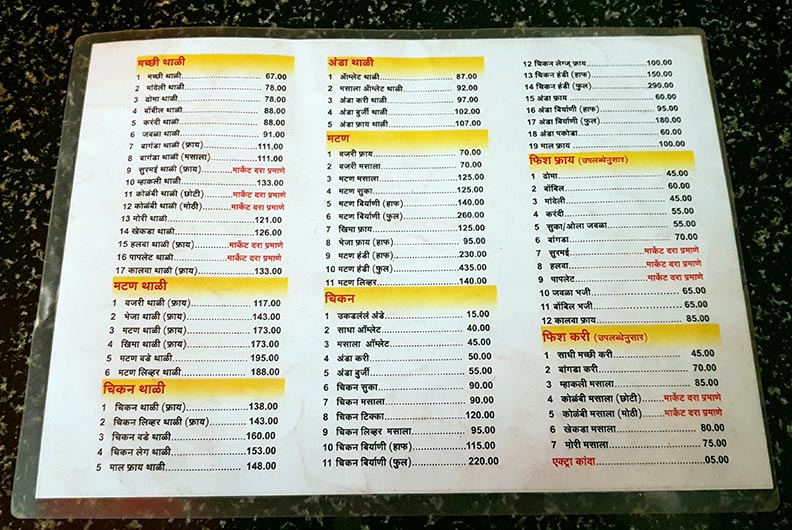 मच्छी थाळी
1 मच्छी थाळी....................67.00
2 मांदेली थाळी..................78.00
3 ढोमा थाळी....................78.00
4 बोंबील थाळी..................88.00
5 करंदी थाळी....................88.00
6 जवळा थाळी....................91.00
7 बागंडा थाळी (फ्राय)................111.00
8 बागंडा थाळी (मसाला)..............111.00
9 सुरमई थाळी (फ्राय).........मार्केट दरा प्रमाणे
10 म्हाकली थाळी....................133.00
11 कोळंबी थाळी (छोटी).......मार्केट दरा प्रमाणे
12 कोळंबी थाळी (मोठी).......मार्केट दरा प्रमाणे
13 मोरी थाळी.......................121.00
14 खेकडा थाळी.....................126.00
15 हलवा थाळी (फ्राय).........मार्केट दरा प्रमाणे
16 पापलेट थाळी................मार्केट दरा प्रमाणे
17 कालवा थाळी (फ्राय)..............133.00
मटण थाळी
1 वजरी थाळी (फ्राय)................117.00
2 भेजा थाळी (फ्राय).................143.00
3 मटण थाळी (फ्राय)................173.00
4 खिमा थाळी (फ्राय)................173.00
5 मटण वडे थाळी....................195.00
6 मटण लिव्हर थाळी.................188.00
चिकन थाळी
1 चिकन थाळी (फ्राय)................138.00
2 चिकन लिव्हर थाळी (फ्राय)..........143.00
3 चिकन वडे थाळी...................160.00
4 चिकन लेग थाळी...................153.00
5 माल फ्राय थाळी....................148.00
अंडा थाळी
1 ऑम्लेट थाळी....................87.00
2 मसाला ऑम्लेट थाळी..............92.00
3 अंडा करी थाळी..................97.00
4 अंडा बुर्जी थाळी.................102.00
5 अंडा फ्राय थाळी.................107.00
मटण
1 वजरी फ्राय.....................70.00
2 वजरी मसाला....................70.00
3 मटण मसाला....................125.00
4 मटण सुका.......................125.00
5 मटण बिर्याणी (हाफ)..............140.00
6 मटण बिर्याणी (फुल)..............260.00
7 खिमा फ्राय......................125.00
8 भेजा फ्राय (हाफ)................95.00
9 मटण हंडी (हाफ).................230.00
10 मटण हंडी (फुल).................435.00
11 मटण लिव्हर.....................140.00
चिकन
1 उकडलंलं अंडे....................15.00
2 साधा ऑम्लेट....................40.00
3 मसाला ऑम्लेट..................45.00
4 अंडा करी........................50.00
5 अंडा बुर्जी.......................55.00
6 चिकन सुका......................90.00
7 चिकन मसाला....................90.00
8 चिकन टिक्का....................120.00
9 चिकन लिव्हर मसाला.............95.00
10 चिकन बिर्याणी (हाफ)............115.00
11 चिकन बिर्याणी (फुल)............220.00
12 चिकन लेग्ज् फ्राय................100.00
13 चिकन हंडी (हाफ)................150.00
14 चिकन हंडी (फुल)................290.00
15 अंडा फ्राय......................60.00
16 अंडा बिर्याणी (हाफ)..............95.00
17 अंडा बिर्याणी (फुल)..............180.00
18 अंडा पकोडा.....................60.00
19 माल फ्राय......................100.00
फिश फ्राय (उपलब्धेनुसार)
1 ढोमा............................45.00
2 बोंबिल..........................60.00
3 मांदेली..........................45.00
4 करंदी...........................55.00
5 सुका/ओला जवळा................55.00
6 बांगडा..........................70.00
7 सुरमई....................मार्केट दरा प्रमाणे
8 हलवा....................मार्केट दरा प्रमाणे
9 पापलेट...................मार्केट दरा प्रमाणे
10 जवळा भजी.....................65.00
11 बोंबिल भजी.....................65.00
12 कालवा फ्राय....................85.00
फिश करी (उपलब्धेनुसार)
1 साधी मच्छी करी..................45.00
2 बांगडा करी......................70.00
3 म्हाकली मसाला..................85.00
4 कोळंबी मसाला (छोटी)......मार्केट दरा प्रमाणे
5 कोळंबी मसाला (मोठी)......मार्केट दरा प्रमाणे
6 खेकडा मसाला...................80.00
7 मोरी मसाला.....................75.00
एक्ट्रा कांदा.........................05.00